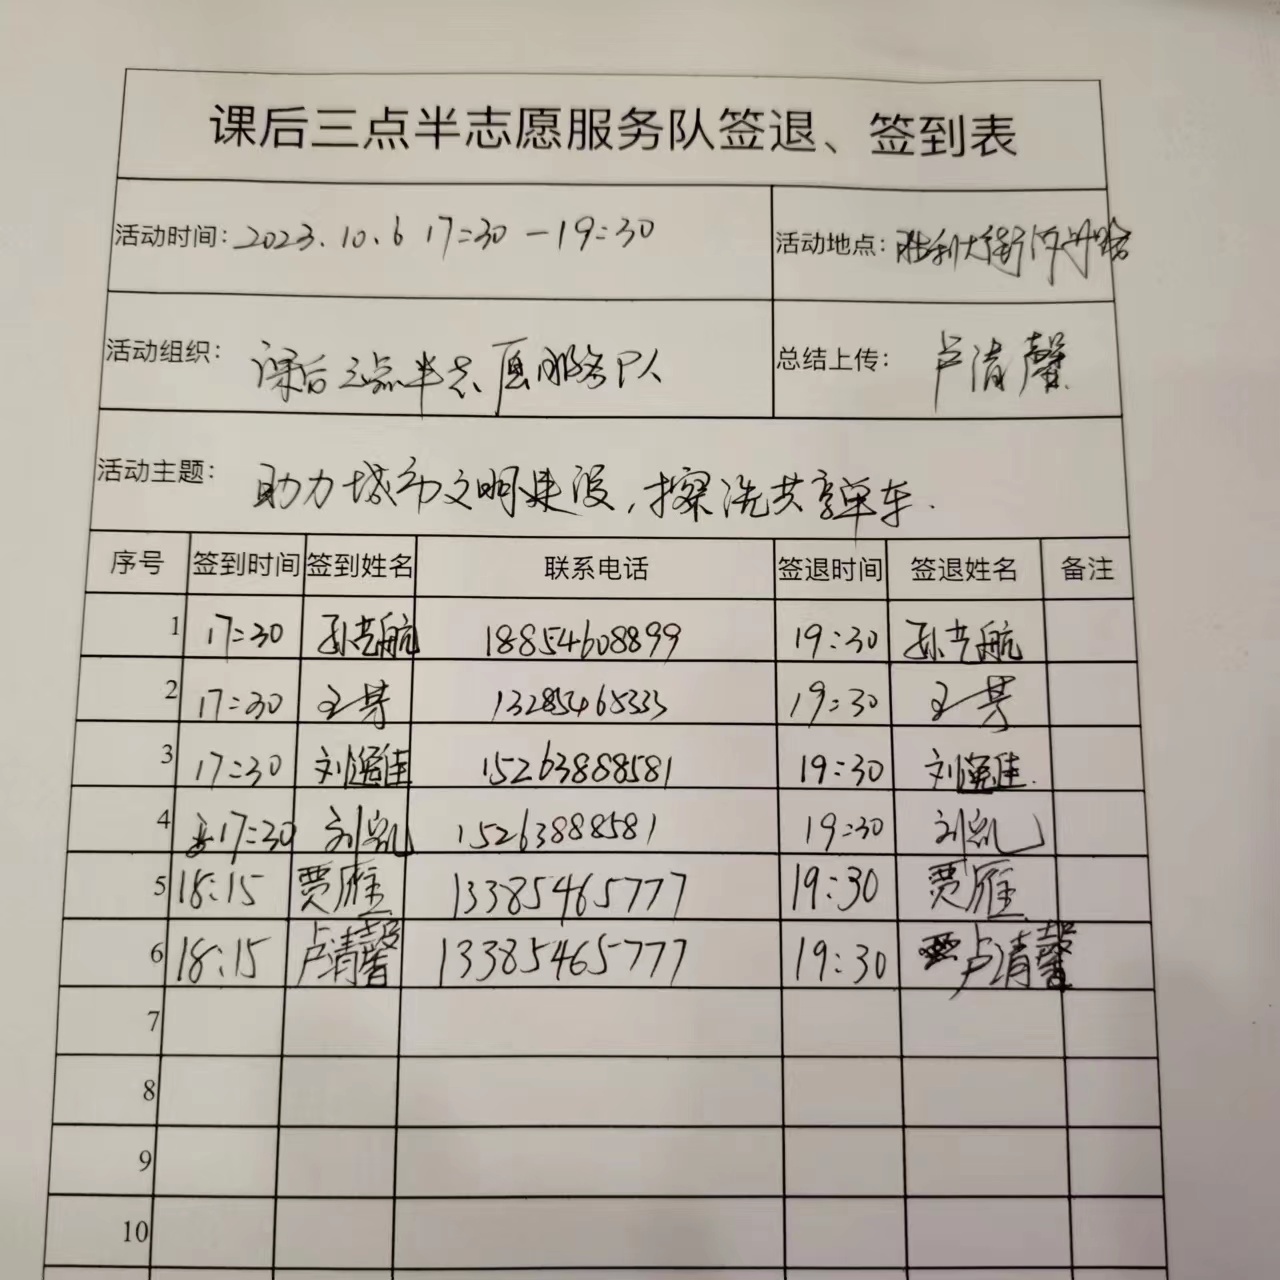 课后三点半志愿服务队签退、签到表
活动时间:2023.10.6 17:30—19:30 活动地点:胜利大街
活动组织: 课后三点半志愿服务队 总结上传: 卢清馨
活动主题: 助力城市文明建设,擦洗共享单车.
序号 签到时间 签到姓名 联系电话 签退时间 签退姓名 备注
1 17:30 孙艺航 18854608899 19:30 孙艺航
2 17:30 王芳 13285465333 19:30 王芳
3 17:30 刘 佳 15263888581 19:30 刘 佳
4 17:30 刘凯 15263888581 19:30 刘凯
5 18:15 贾雁 13385465777 19:30 贾雁
6 18:15 卢清馨 13385465777 19:30 卢清馨
7
8
9
10